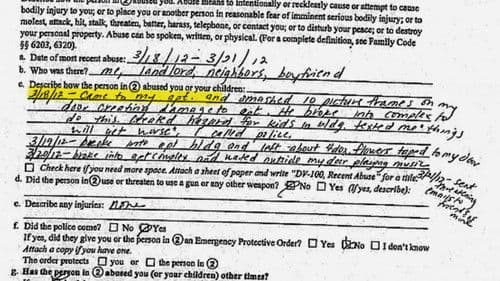 abused you. Abuse means to intentionally or recklessly cause or attempt to cause
bodily injury to you; or to place you or another person in reasonable fear of imminent serious bodily injury; or to
molest, attack, hit, stalk, threaten, batter, harass, telephone, or contact you; or to disturb your peace; or to destroy
your personal property. Abuse can be spoken, written, or physical. (For a complete definition, see Family Code
§§ 6203, 6320).
a. Date of most recent abuse: 3/18/12 - 3/21/12
b. Who was there? me, landlord, neighbors, boyfriend
c. Describe how the person in ② abused you or your children:
3/18/12 - Came to my apt. and smashed 10 picture frames on my
door creating damage to it. He broke into complex to
do this. Created hazard for kids in bldg. texted me "things
will get worse", I called police.
3/19/12 - broke into apt bldg and left about 4doz flowers taped to my door
3/20/12 - broke into apt complex and waited outside my door playing music
3/21/12 - Sent threatening emails to friends of mine
☐ Check here if you need more space. Attach a sheet of paper and write "DV-100, Recent Abuse" for a title.
d. Did the person in ② use or threaten to use a gun or any other weapon? ☑ No ☐ Yes (If yes, describe):
e. Describe any injuries: none
f. Did the police come? ☐ No ☑ Yes
If yes, did they give you or the person in ② an Emergency Protective Order? ☐ Yes ☑ No ☐ I don't know
Attach a copy if you have one.
The order protects ☐ you or ☐ the person in ②
g. Has the person in ② abused you (or your children) other times?